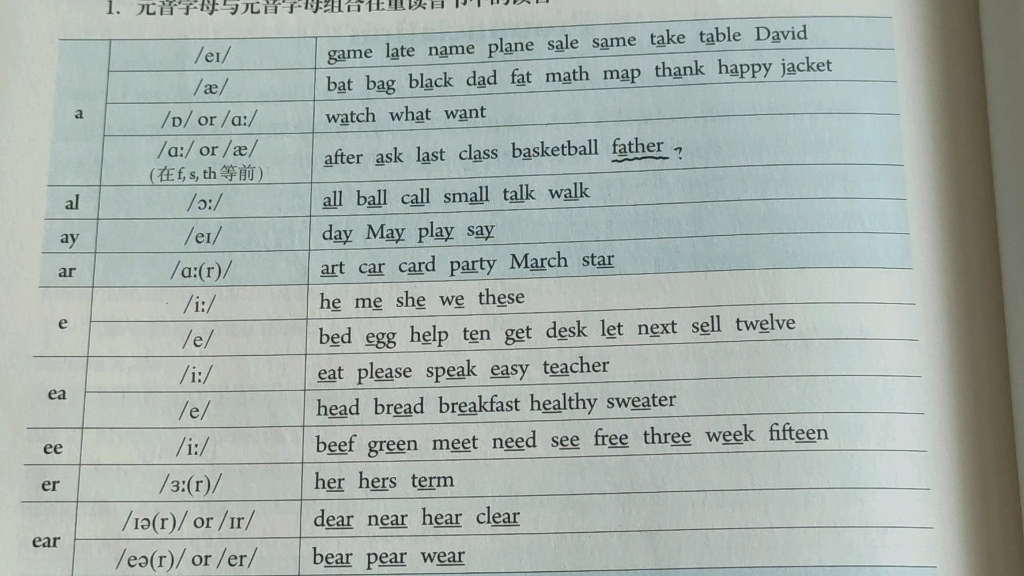 1. 元音字母与元音字母组合在重读音节中的读音
a
/eɪ/ game late name plane sale same take table David
/æ/ bat bag black dad fat math map thank happy jacket
/ɒ/ or /ɑː/ watch what want
/ɑː/ or /æ/
(在f, s, th等前) after ask last class basketball father ?
al /ɔː/ all ball call small talk walk
ay /eɪ/ day May play say
ar /ɑː(r)/ art car card party March star
e
/iː/ he me she we these
/e/ bed egg help ten get desk let next sell twelve
ea
/iː/ eat please speak easy teacher
/e/ head bread breakfast healthy sweater
ee /iː/ beef green meet need see free three week fifteen
er /ɜː(r)/ her hers term
ear
/ɪə(r)/ or /ɪr/ dear near hear clear
/eə(r)/ or /er/ bear pear wear